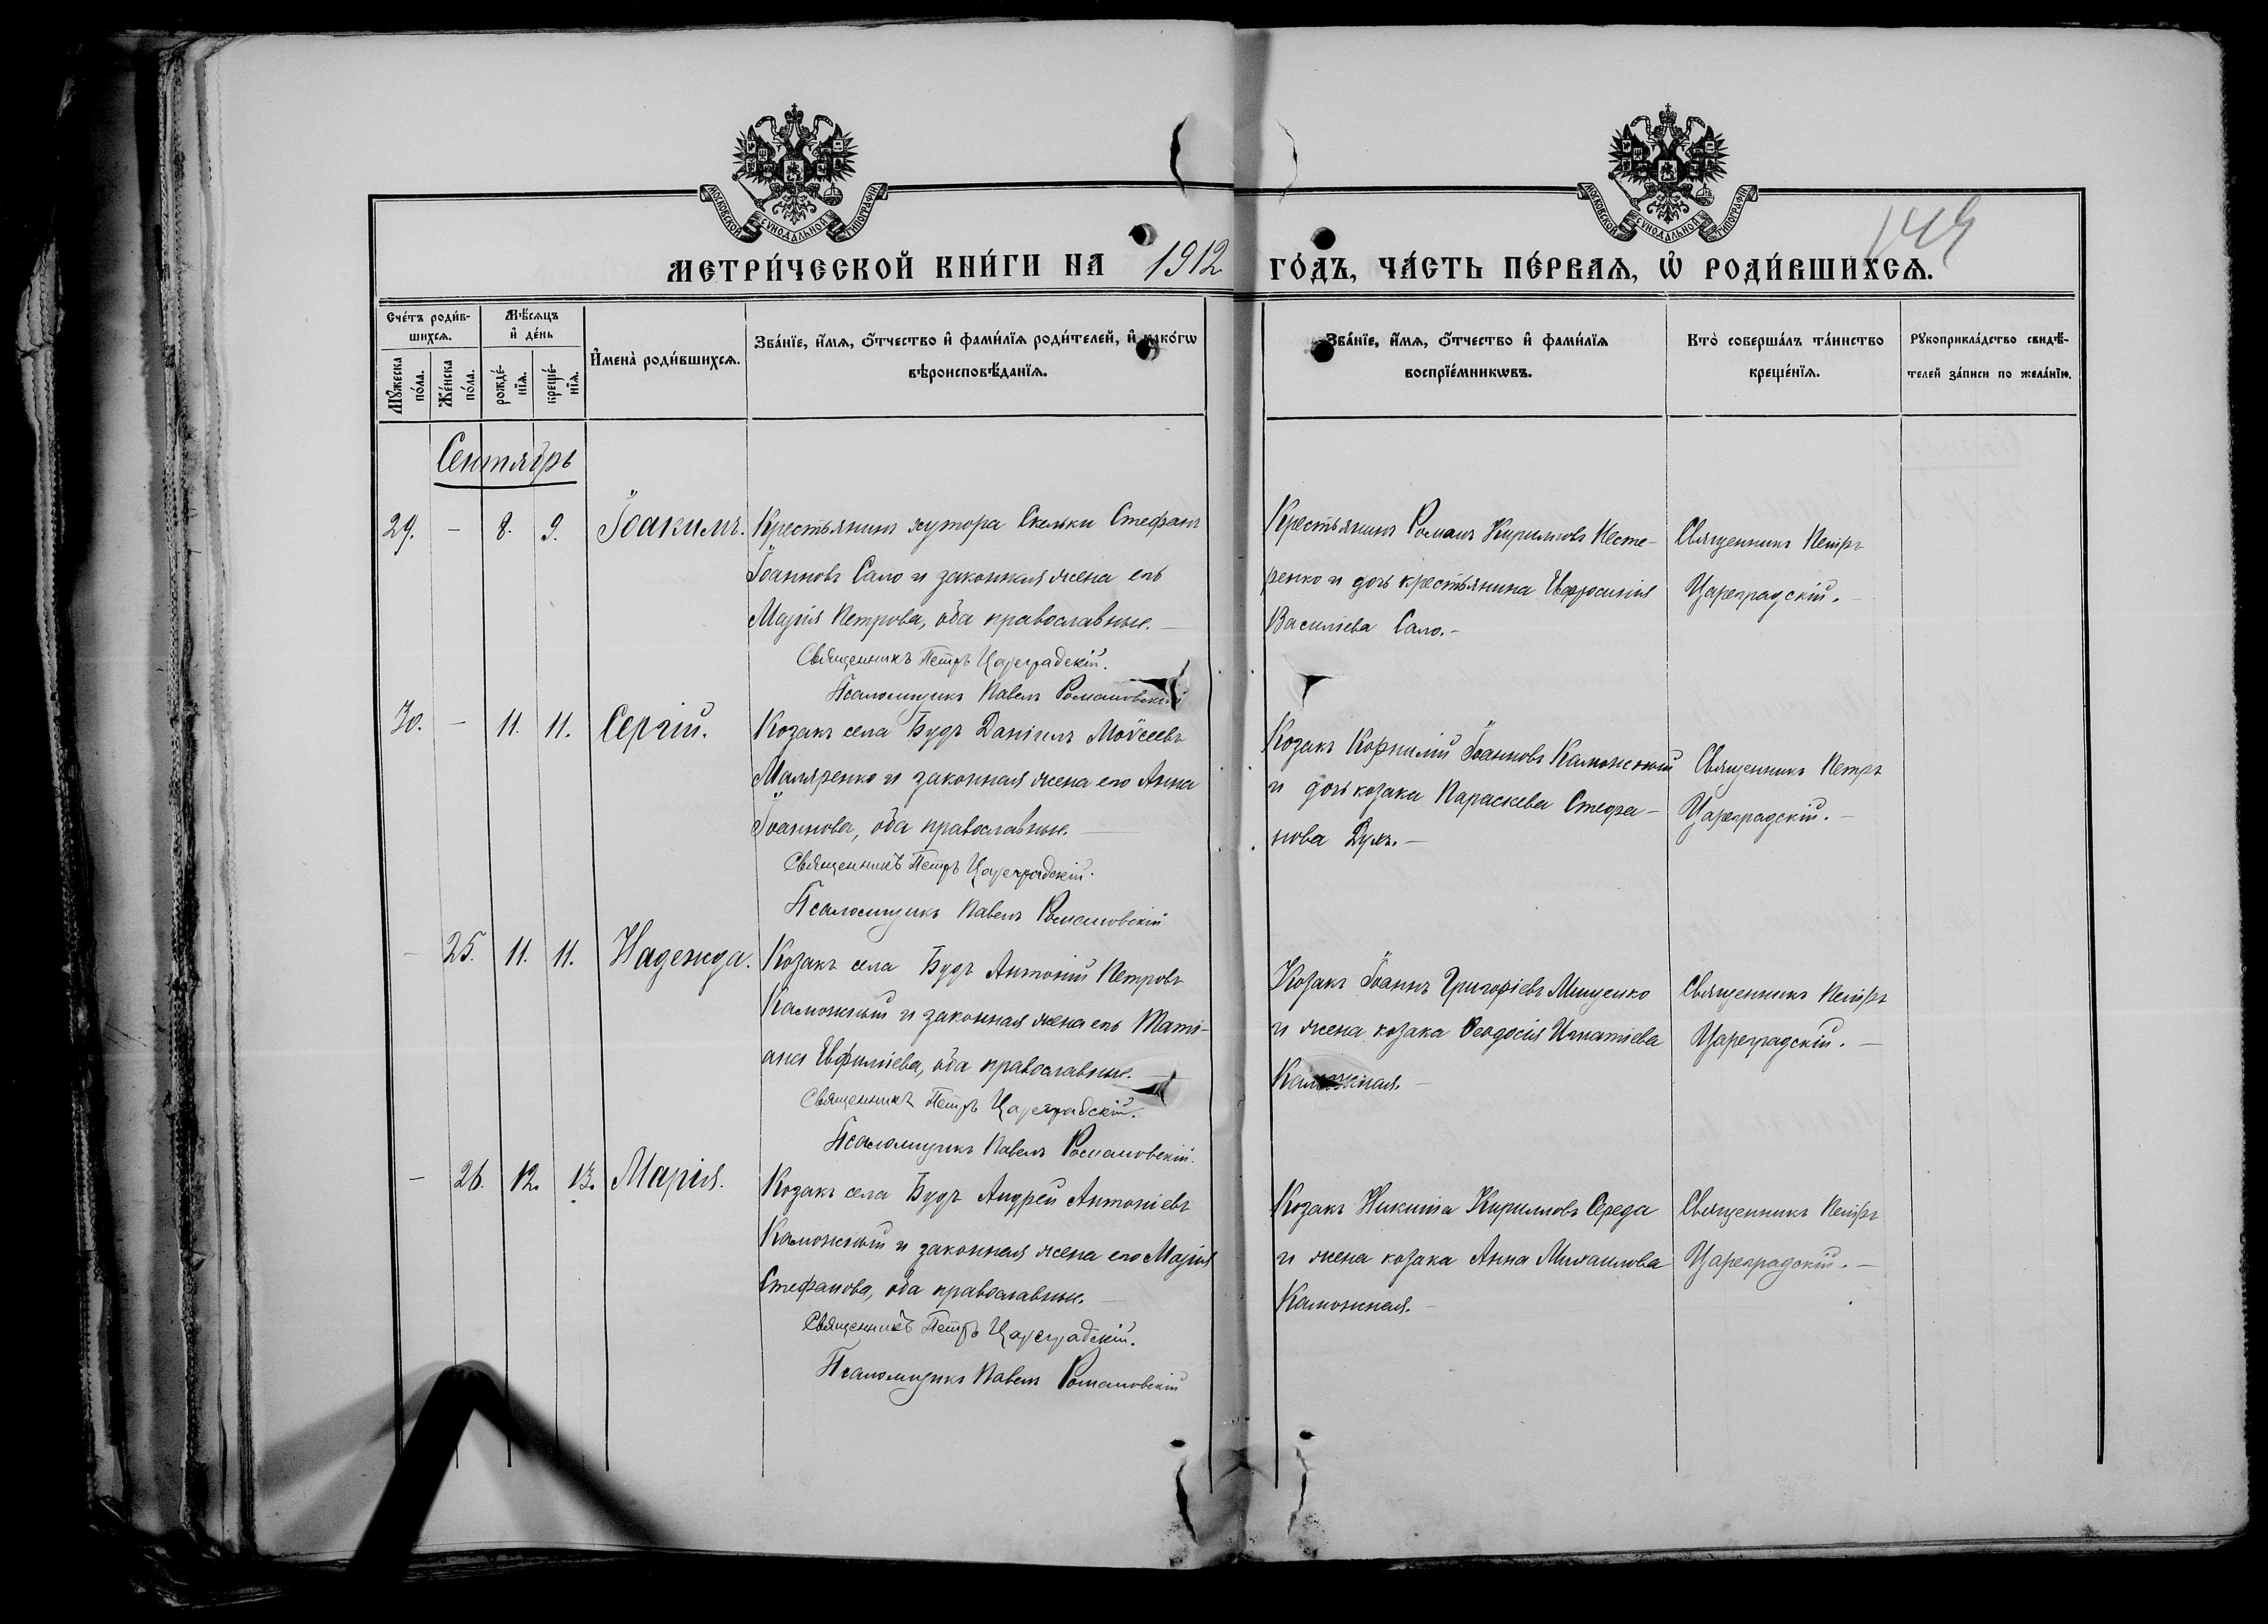 МОСКОВСКОЙ СѴНОДАЛЬНОЙ ТИПОГРАФІИ
МОСКОВСКОЙ СѴНОДАЛЬНОЙ ТИПОГРАФІИ
149
МЕТРИ́ЧЕСКОЙ КНИ́ГИ НА 1912 ГО́ДЪ, ЧА́СТЬ ПЕ́РВАѦ, Ѡ҆ РОДИ́ВШИХСѦ.
Сче́тъ роди́в-
шихсѧ.
Мꙋ́жеска по́ла.
Же́нска по́ла.
Мѣ́сѧцъ
и҆ де́нь
рожде́-
нїѧ.
креще́-
нїѧ.
И҆мена̀ роди́вшихсѧ.
Зва́нїе, и҆́мѧ, ѻ҆́тчество и҆ фами́лїѧ роди́телей, и҆ како́гѡ
вѣроисповѣ́данїѧ.
Зва́нїе, и҆́мѧ, ѻ҆́тчество и҆ фами́лїѧ
воспрїе́мникѡвъ.
Кто̀ соверша́лъ та́инство
креще́нїѧ.
Рꙋкоприкла́дство свидѣ́-
телей за́писи по жела́нїю.
Сентябрь
29. - 8. 9. Іоакимъ. Крестьянинъ хутора Скельки Стефанъ
Іоанновъ Сало и законная жена его
Марія Петрова, оба православные.
Священникъ Петръ Цареградскій.
Псаломщикъ Павелъ Романовскій
Крестьянинъ Романъ Кирилловъ Несте-
ренко и дочь крестьянина Евфросинія
Василіева Сало.-
Священникъ Петръ
Цареградскій.-
30. - 11. 11. Сергій. Козакъ села Будъ Даніилъ Моѵсеевъ
Маляренко и законная жена его Анна
Іоаннова, оба православные.-
Священникъ Петръ Цареградскій.
Псаломщикъ Павелъ Романовскій
Козакъ Корнилій Іоанновъ Каможный
и дочь козака Параскева Стефа-
нова
Священникъ Петръ
Цареградскій.-
- 25. 11. 11. Надежда. Козакъ села Будъ Антоній Петровъ
Каможный и законная жена его Таті-
ана Евфиміева, оба православные.-
Священникъ Петръ Цареградскій.
Псаломщикъ Павелъ Романовскій.
Козакъ Іоаннъ Григоріевъ Мищенко
и жена козака Ѳеодосія Игнатіева
Каможная.-
Священникъ Петръ
Цареградскій.-
- 26. 12. 13. Марія. Козакъ села Будъ Андрей Антоніевъ
Каможный и законная жена его Марія
Стефанова, оба православные.-
Священникъ Петръ Цареградскій.
Псаломщикъ Павелъ Романовскій
Козакъ Никита Кирилловъ Середа
и жена козака Анна Михаилова
Каможная.-
Священникъ Петръ
Цареградскій.-